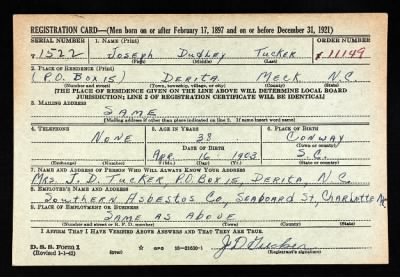 REGISTRATION CARD—(Men born on or after February 17, 1897 and on or before December 31, 1921)
SERIAL NUMBER 1. NAME (Print) ORDER NUMBER
T 1522 JOSEPH DUDLEY TUCKER 11149
(First) (Middle) (Last)
2. PLACE OF RESIDENCE (Print)
(P.O. BOX 15) DERITA MECK N.C.
(Number and street) (Town, township, village, or city) (County) (State)
[THE PLACE OF RESIDENCE GIVEN ON THE LINE ABOVE WILL DETERMINE LOCAL BOARD
JURISDICTION; LINE 2 OF REGISTRATION CERTIFICATE WILL BE IDENTICAL]
3. MAILING ADDRESS
SAME
[Mailing address if other than place indicated on line 2. If same insert word same]
4. TELEPHONE 5. AGE IN YEARS 6. PLACE OF BIRTH
NONE 38 CONWAY
DATE OF BIRTH (Town or county)
APR. 16 1903 S.C.
(Exchange) (Number) (Mo.) (Day) (Yr.) (State or country)
7. NAME AND ADDRESS OF PERSON WHO WILL ALWAYS KNOW YOUR ADDRESS
MRS. J. D. TUCKER, P.O. BOX 15, DERITA, N.C.
8. EMPLOYER'S NAME AND ADDRESS
SOUTHERN ASBESTOS CO, SEABOARD ST, CHARLOTTE NC
9. PLACE OF EMPLOYMENT OR BUSINESS
SAME AS ABOVE
(Number and street or R. F. D. number) (Town) (County) (State)
I AFFIRM THAT I HAVE VERIFIED ABOVE ANSWERS AND THAT THEY ARE TRUE.
D. S. S. Form 1
(Revised 1-1-42) GPO 16—21630-1 J D Tucker